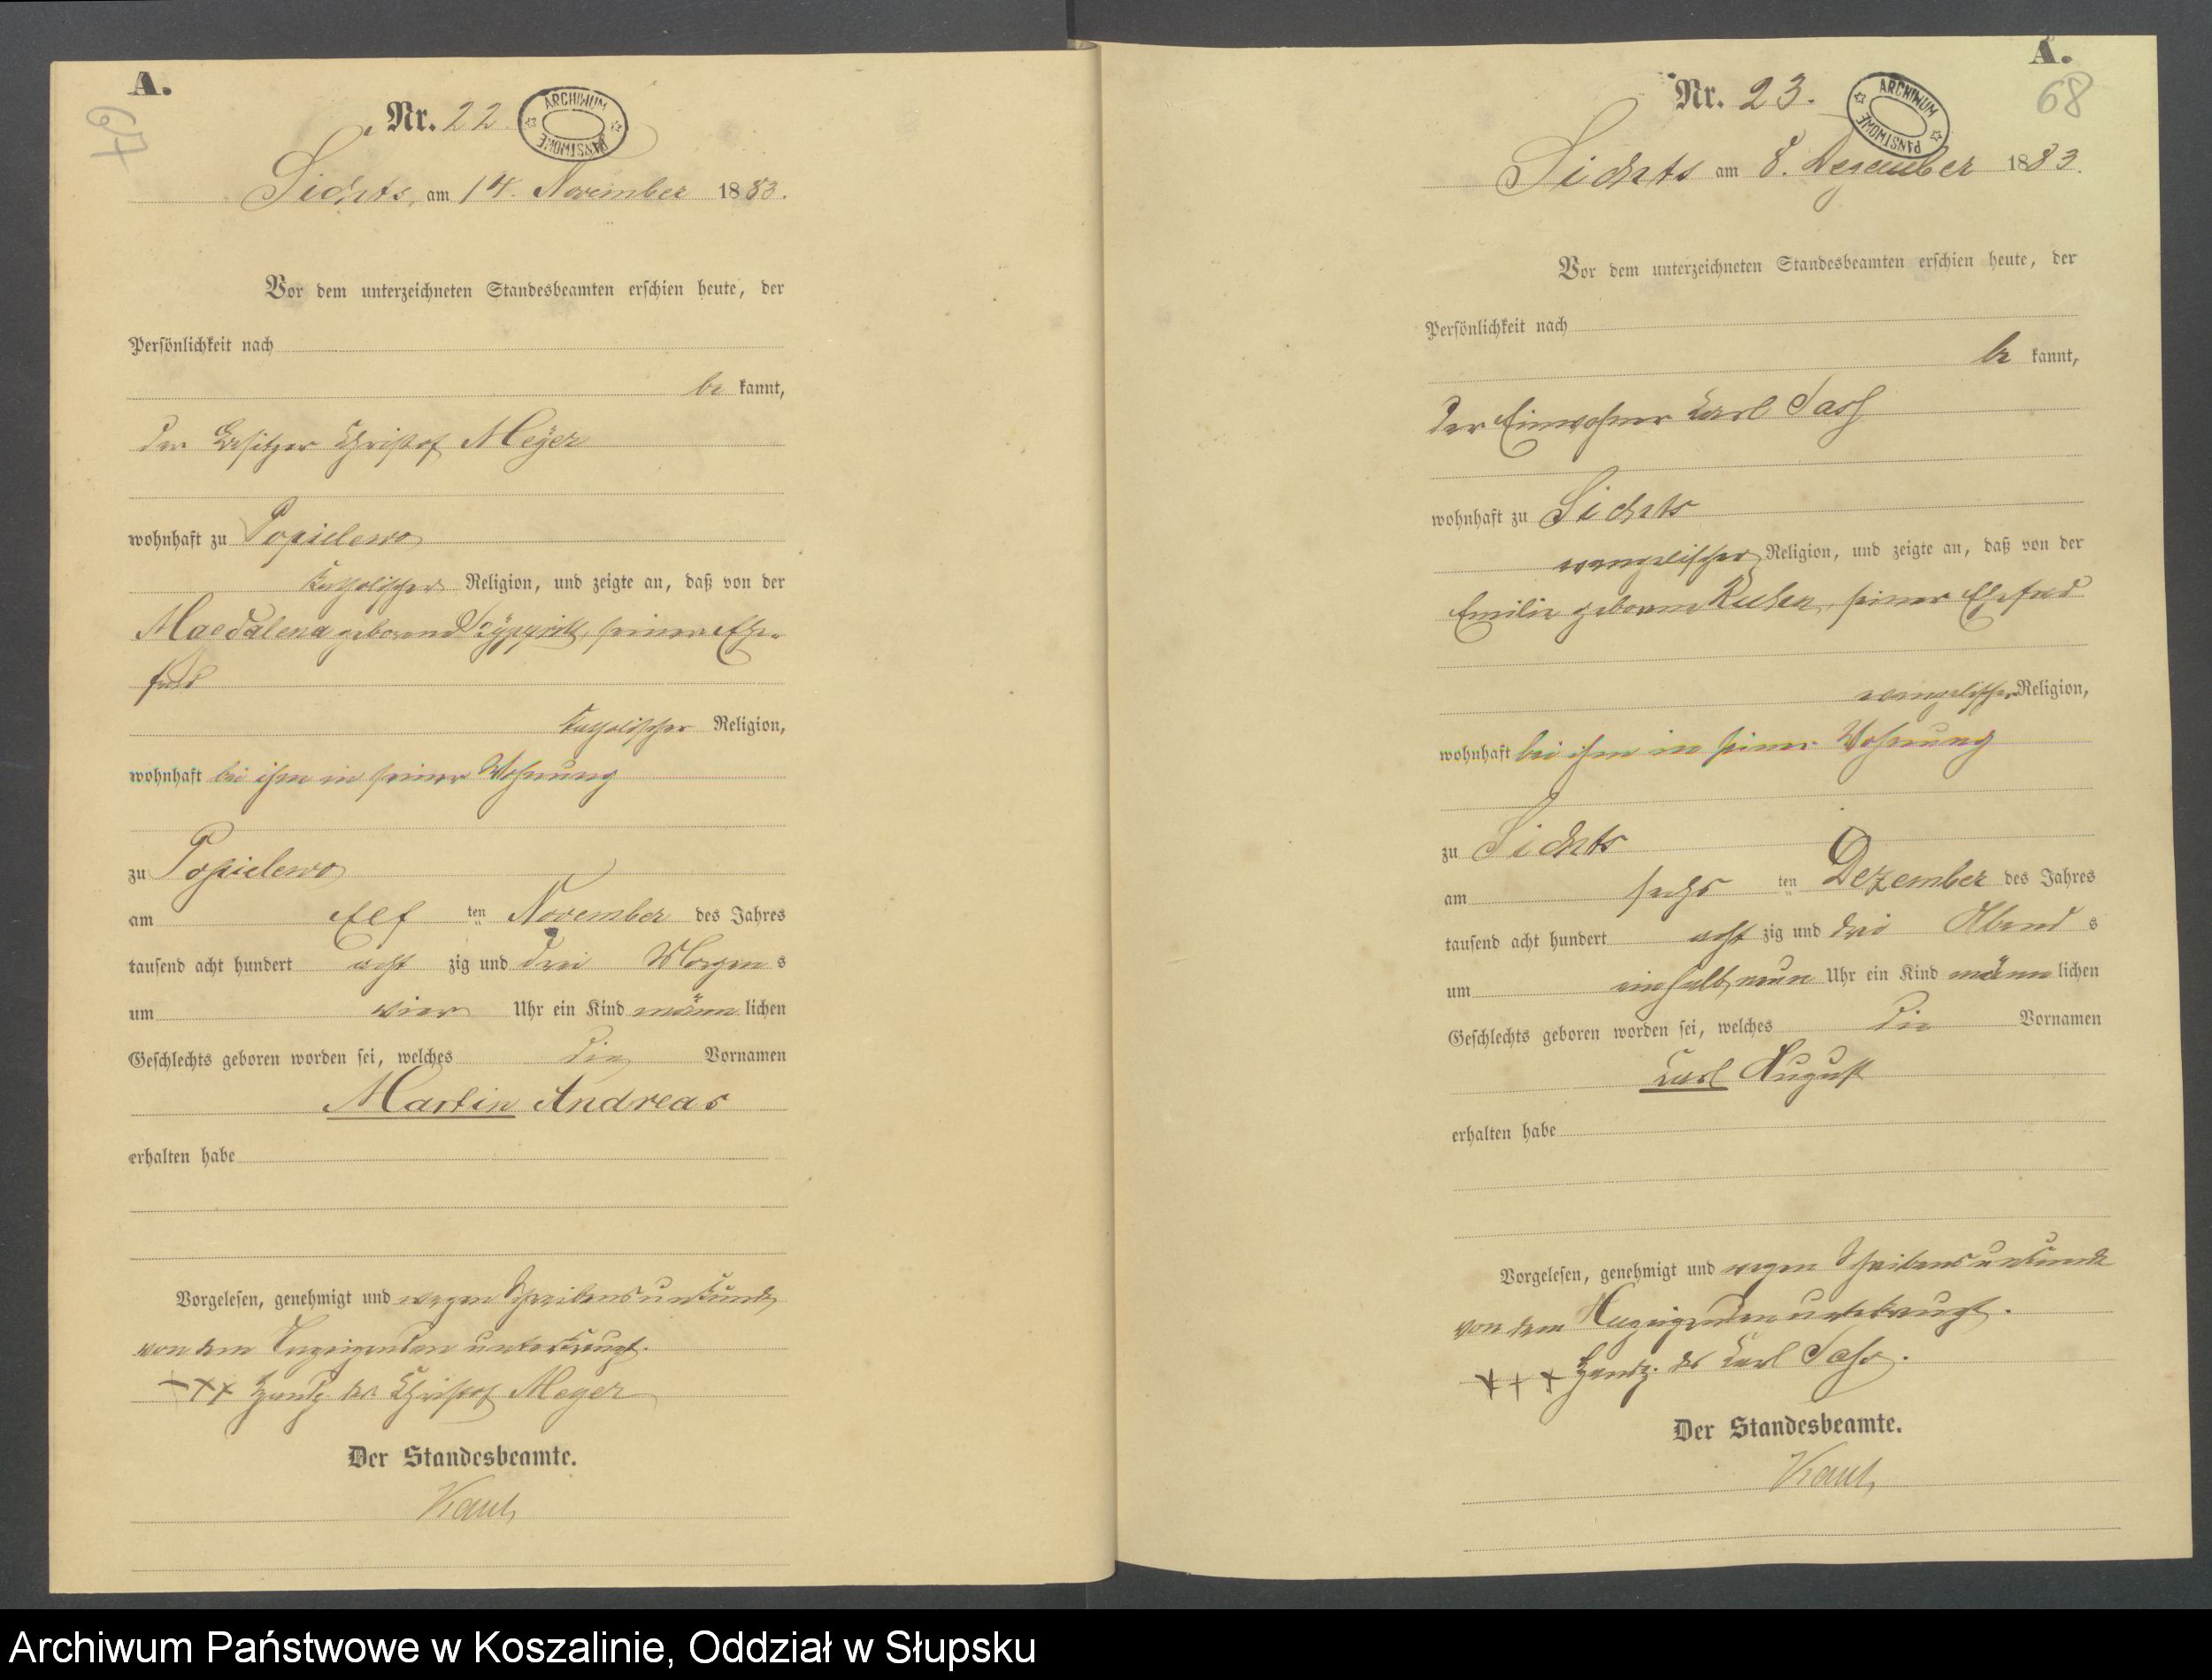 A.
67
Nr. 22.
ARCHIWUM PAŃSTWOWE
Sichts, am 14. November 1883.
Vor dem unterzeichneten Standesbeamten erschien heute, der
Persönlichkeit nach
be kannt,
der Besitzer Christof Meyer
wohnhaft zu Popielewo
katholischer Religion, und zeigte an, daß von der
Magdalena geborene seiner Ehe-
frau
katholischer Religion,
wohnhaft bei ihm in seiner Wohnung
zu Popielewo
am elf ten November des Jahres
tausend acht hundert acht zig und drei Morgen s
um vier Uhr ein Kind männ lichen
Geschlechts geboren worden sei, welches die Vornamen
Martin Andreas
erhalten habe
Vorgelesen, genehmigt und wegen Schreibensunkunde
von dem Anzeigenden unterkreuzt.
+++ Handz. des Christof Meyer
Der Standesbeamte.
A.
68
Nr. 23.
ARCHIWUM PAŃSTWOWE
Sichts am 8. Dezember 1883.
Vor dem unterzeichneten Standesbeamten erschien heute, der
Persönlichkeit nach
be kannt,
der Einwohner Carl Sass
wohnhaft zu Sichts
evangelischer Religion, und zeigte an, daß von der
Emilie geborene seiner Ehefrau
evangelischer Religion,
wohnhaft bei ihm in seiner Wohnung
zu Sichts
am sechs ten Dezember des Jahres
tausend acht hundert acht zig und drei Abend s
um ein halb neun Uhr ein Kind männ lichen
Geschlechts geboren worden sei, welches die Vornamen
Carl August
erhalten habe
Vorgelesen, genehmigt und wegen Schreibensunkunde
von dem Anzeigenden unterkreuzt.
+++ Handz. des Carl Sass.
Der Standesbeamte.
Archiwum Państwowe w Koszalinie, Oddział w Słupsku